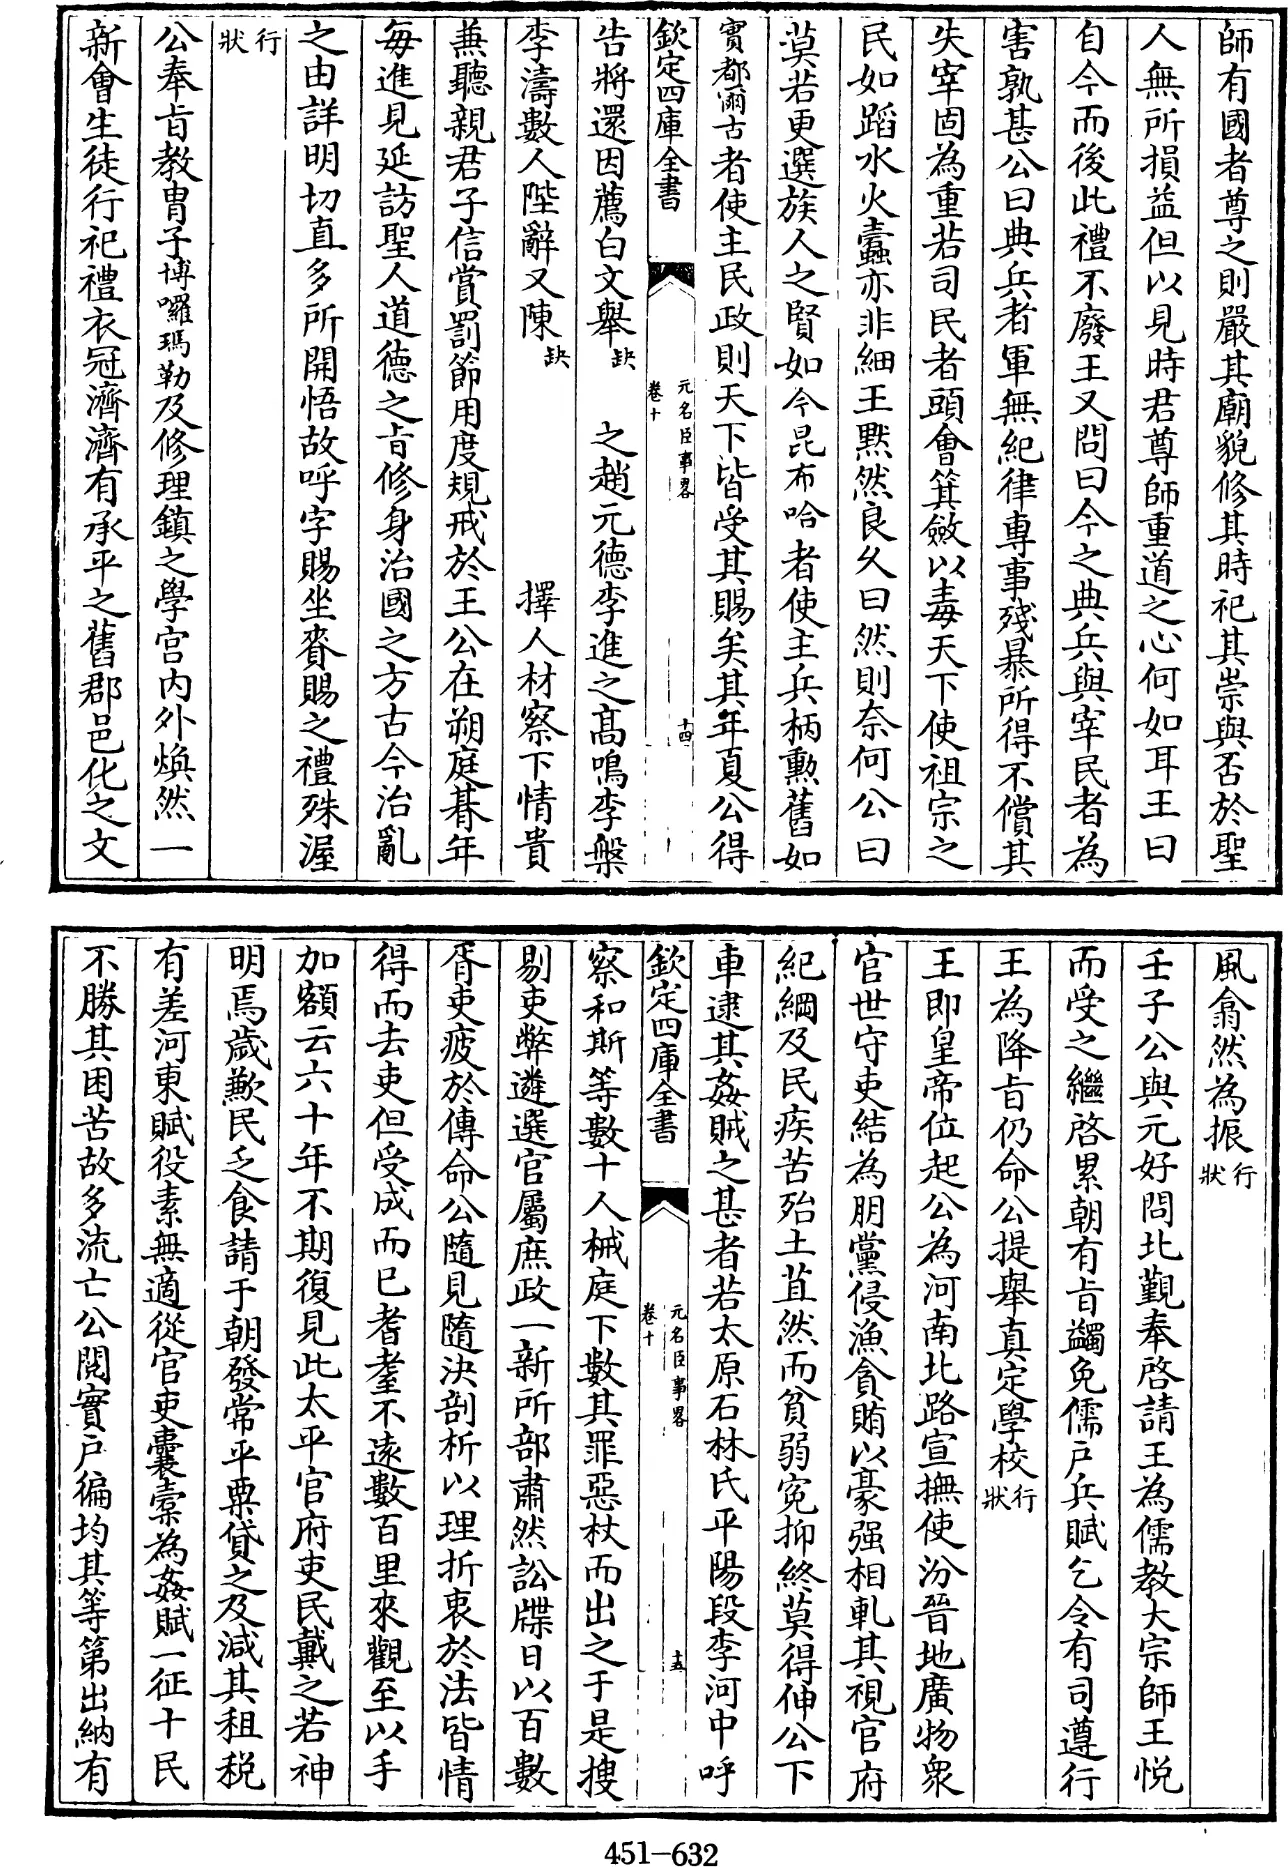 師有國者尊之則嚴其廟貌修其時祀其崇與否於聖
人無所損益但以見時君尊師重道之心何如耳王曰
自今而後此禮不廢王又問曰今之典兵與宰民者為
害孰甚公曰典兵者軍無紀律專事殘暴所得不償其
失宰固為重若司民者頭會箕斂以毒天下使祖宗之
民如蹈水火蠹亦非細王默然良久曰然則奈何公曰
莫若更選族人之賢如今昆布哈者使主兵柄勲舊如
實都爾古者使主民政則天下皆受其賜矣其年夏公得
欽定四庫全書
元名臣事畧
卷十
十四
告將還因薦白文舉缺 之趙元德李進之髙鳴李槃
李濤數人陛辭又陳缺 擇人材察下情貴
兼聽親君子信賞罰節用度規戒於王公在朔庭朞年
每進見延訪聖人道德之㫖修身治國之方古今治亂
之由詳明切直多所開悟故呼字賜坐賚賜之禮殊渥
行狀
公奉㫖教胄子博囉瑪勒及修理鎮之學宫内外煥然一
新會生徒行祀禮衣冠濟濟有承平之舊郡邑化之文
風翕然為振行狀
壬子公與元好問北覲奉啓請王為儒教大宗師王悦
而受之繼啓累朝有㫖蠲免儒户兵賦乞令有司遵行
王為降㫖仍命公提舉真定學校行狀
王即皇帝位起公為河南北路宣撫使汾晉地廣物衆
官世守吏結為朋黨侵漁貪賄以豪强相軋其視官府
紀綱及民疾苦殆土苴然而貧弱寃抑終莫得伸公下
車逮其姦贓之甚者若太原石林氏平陽段李河中呼
欽定四庫全書
元名臣事畧
卷十
十五
察和斯等數十人械庭下數其罪惡杖而出之于是搜
剔吏弊遴選官屬庶政一新所部肅然訟牒日以百數
胥吏疲於傳命公隨見隨決剖析以理折衷於法皆情
得而去吏但受成而已耆耋不逺數百里來觀至以手
加額云六十年不期復見此太平官府吏民戴之若神
明焉歲歉民乏食請于朝發常平粟貸之及減其租税
有差河東賦役素無適從官吏囊橐為姦賦一征十民
不勝其困苦故多流亡公閲實户徧均其等第出納有
451-632